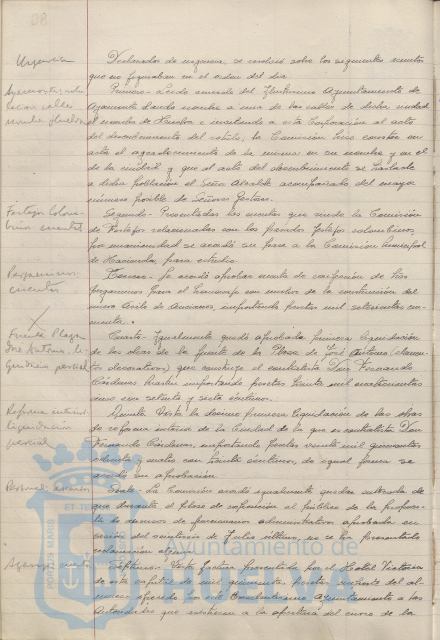 38
Urgencia
Declarados de urgencia, se resolvió sobre los siguientes asuntos
que no figuraban en el orden del dia.
Primero - Leido oficio del Ilustrísimo Ayuntamiento de
Ayamonte dando nombre a una de las calles de dicha ciudad
el nombre de Huelva e invitando a esta Corporación al acto
del descubrimiento del rótulo, la Comisión hizo constar en
acta el agradecimiento de la misma en su nombre y en el
de la ciudad y que al acto del descubrimiento se traslade
a dicha población el Señor Alcalde acompañado del mayor
número posible de Señores Gestores.
Festejos Colom-
binos cuentas
Segundo - Presentadas las cuentas que rinde la Comisión
de Festejos relacionadas con las pasadas fiestas colombinas,
por unanimidad se acordó su pase a la Comisión Municipal
de Hacienda, para estudio.
Tercero - Se acordó aprobar cuenta de confección de
pergaminos para el homenaje con motivo de la construcción del
nuevo Asilo de Ancianos, importando pesetas mil setecientas cin-
cuenta.
Fuente Plaza
José Antonio li-
quidación parcial
Cuarto - Igualmente quedó aprobada primera liquidación
de las obras de la fuente de la Plaza de José Antonio (elemen-
tos decorativos) que construye el contratista Don Fernando
importando pesetas treinta mil cuatrocientas
cinco con setenta y siete céntimos.
Reforma interior
liquidación
parcial
Quinto - Vista la décimo primera liquidación de las obras
de reforma interior de la Ciudad de la que es contratista Don
Fernando importando pesetas veinte mil quinientas
ochenta y cuatro con treinta céntimos, de igual forma se
acordó su aprobación.
Sexto - La Comisión acordó igualmente quedar enterada de
que durante el plazo de exposición al público de la propues-
ta de ascensos de funcionarios administrativos aprobada en
sesión del veintiseis de Julio último, no se han presentado
reclamación alguna.
Septimo - Vista factura presentada por el Hotel Victoria
de esta capital de mil quinientas pesetas importe del al-
muerzo ofrecido por este Excelentísimo Ayuntamiento a las
Autoridades que asistieron a la apertura del curso de la
Ayuntamiento de
PORTUS MARIS
ET TE